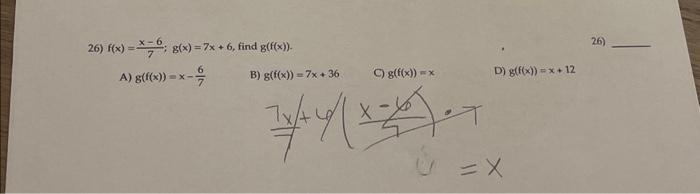 26) f(x) = x - 6 / 7 ; g(x) = 7x + 6, find g(f(x)).
26)
A) g(f(x)) = x - 6/7 B) g(f(x)) = 7x + 36 C) g(f(x)) = x D) g(f(x)) = x + 12
7x + 6 ( x - 6 ) · 7
= x